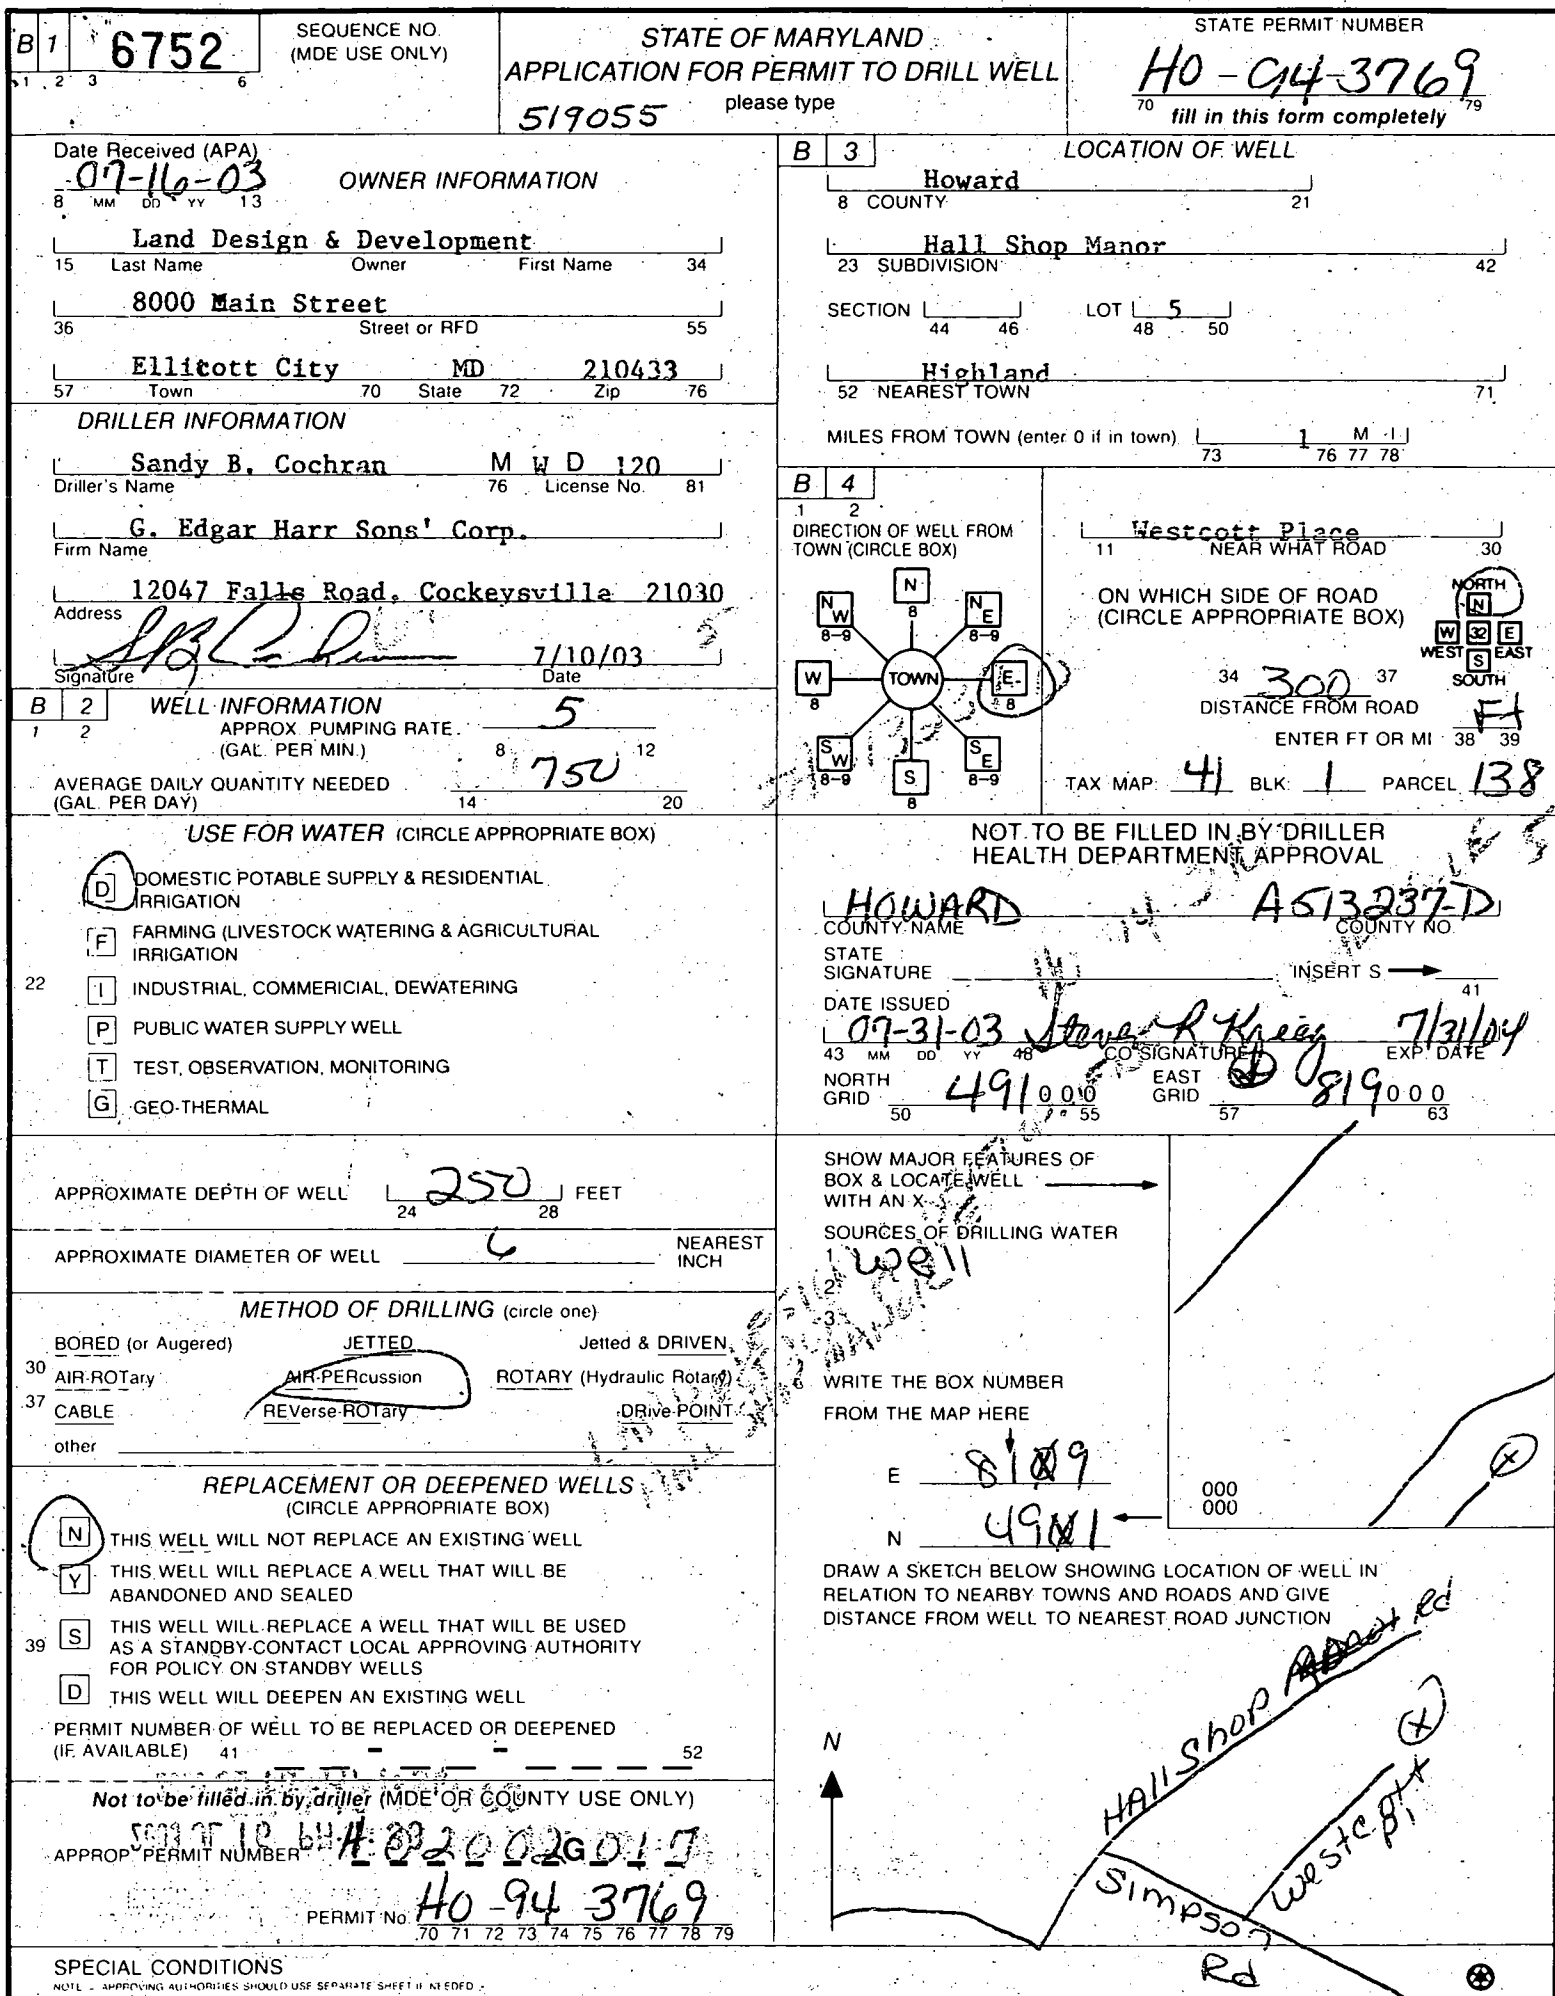 B 1 6752
1 2 3 6
SEQUENCE NO.
(MDE USE ONLY)
STATE OF MARYLAND
APPLICATION FOR PERMIT TO DRILL WELL
please type
519055
STATE PERMIT NUMBER
HO-94-3769
70 79
fill in this form completely
Date Received (APA)
07-16-03
8 MM DD YY 13
OWNER INFORMATION
Land Design & Development
15 Last Name Owner First Name 34
8000 Main Street
36 Street or RFD 55
Ellicott City MD 210433
57 Town 70 State 72 Zip 76
DRILLER INFORMATION
Sandy B. Cochran M W D 120
Driller's Name 76 License No. 81
G. Edgar Harr Sons' Corp.
Firm Name
12047 Falls Road, Cockeysville 21030
Address
7/10/03
Signature Date
B 2 WELL INFORMATION
1 2
APPROX. PUMPING RATE 5
(GAL. PER MIN.) 8 12
AVERAGE DAILY QUANTITY NEEDED 750
(GAL. PER DAY) 14 20
USE FOR WATER (CIRCLE APPROPRIATE BOX)
D DOMESTIC POTABLE SUPPLY & RESIDENTIAL
IRRIGATION
F FARMING (LIVESTOCK WATERING & AGRICULTURAL
IRRIGATION
22 I INDUSTRIAL, COMMERICIAL, DEWATERING
P PUBLIC WATER SUPPLY WELL
T TEST, OBSERVATION, MONITORING
G GEO-THERMAL
APPROXIMATE DEPTH OF WELL 250 FEET
24 28
APPROXIMATE DIAMETER OF WELL 6 NEAREST
INCH
METHOD OF DRILLING (circle one)
BORED (or Augered) JETTED Jetted & DRIVEN
30 AIR-ROTary AIR-PERcussion ROTARY (Hydraulic Rotary)
37 CABLE REVerse-ROTary DRive-POINT
other
REPLACEMENT OR DEEPENED WELLS
(CIRCLE APPROPRIATE BOX)
N THIS WELL WILL NOT REPLACE AN EXISTING WELL
Y THIS WELL WILL REPLACE A WELL THAT WILL BE
ABANDONED AND SEALED
39 S THIS WELL WILL REPLACE A WELL THAT WILL BE USED
AS A STANDBY-CONTACT LOCAL APPROVING AUTHORITY
FOR POLICY ON STANDBY WELLS
D THIS WELL WILL DEEPEN AN EXISTING WELL
PERMIT NUMBER OF WELL TO BE REPLACED OR DEEPENED
(IF AVAILABLE) 41 - - 52
Not to be filled in by driller (MDE OR COUNTY USE ONLY)
APPROP. PERMIT NUMBER G 017
PERMIT No. HO-94-3769
70 71 72 73 74 75 76 77 78 79
SPECIAL CONDITIONS
NOTE - APPROVING AUTHORITIES SHOULD USE SEPARATE SHEET IF NEEDED
B 3 LOCATION OF WELL
Howard
8 COUNTY 21
Hall Shop Manor
23 SUBDIVISION 42
SECTION LOT 5
44 46 48 50
Highland
52 NEAREST TOWN 71
MILES FROM TOWN (enter 0 if in town) 1 M I
73 76 77 78
B 4
1 2
DIRECTION OF WELL FROM
TOWN (CIRCLE BOX)
N
8
NW NE
8-9 8-9
W TOWN E
8 8
SW SE
8-9 8-9
S
8
Westcott Place
11 NEAR WHAT ROAD 30
ON WHICH SIDE OF ROAD
(CIRCLE APPROPRIATE BOX)
NORTH
N
W 32 E
WEST EAST
S
SOUTH
34 300 37
DISTANCE FROM ROAD
ENTER FT OR MI Ft
38 39
TAX MAP: 41 BLK: 1 PARCEL 138
NOT TO BE FILLED IN BY DRILLER
HEALTH DEPARTMENT APPROVAL
HOWARD A513237-D
COUNTY NAME COUNTY NO.
STATE
SIGNATURE INSERT S
41
DATE ISSUED
07-31-03 Steven R Krieg 7/31/04
43 MM DD YY 48 CO SIGNATURE EXP. DATE
NORTH
GRID 491000
50 55
EAST
GRID 819000
57 63
SHOW MAJOR FEATURES OF
BOX & LOCATE WELL
WITH AN X
SOURCES OF DRILLING WATER
1. well
2.
3.
WRITE THE BOX NUMBER
FROM THE MAP HERE
E 819
N 491
000
000
X
DRAW A SKETCH BELOW SHOWING LOCATION OF WELL IN
RELATION TO NEARBY TOWNS AND ROADS AND GIVE
DISTANCE FROM WELL TO NEAREST ROAD JUNCTION
N
Hall Shop Rd
X
Westcott Pl
Simpson
Rd